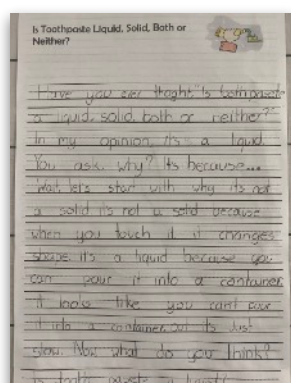 Is Toothpaste Liquid, Solid, Both or
Neither?
Have you ever thoght "Is toothpaste
a liquid, solid, both or neither?"
In my opinion, it's a liquid.
You ask why? It's because...
Wait, let's start with why it's not
a solid it's not a solid because
when you touch it it changes
shape. it's a liquid because you
can pour it into a container.
it looks like you can't pour
it into a container, but it's just
slow. Now what do you think?
is tooth paste a liquid?